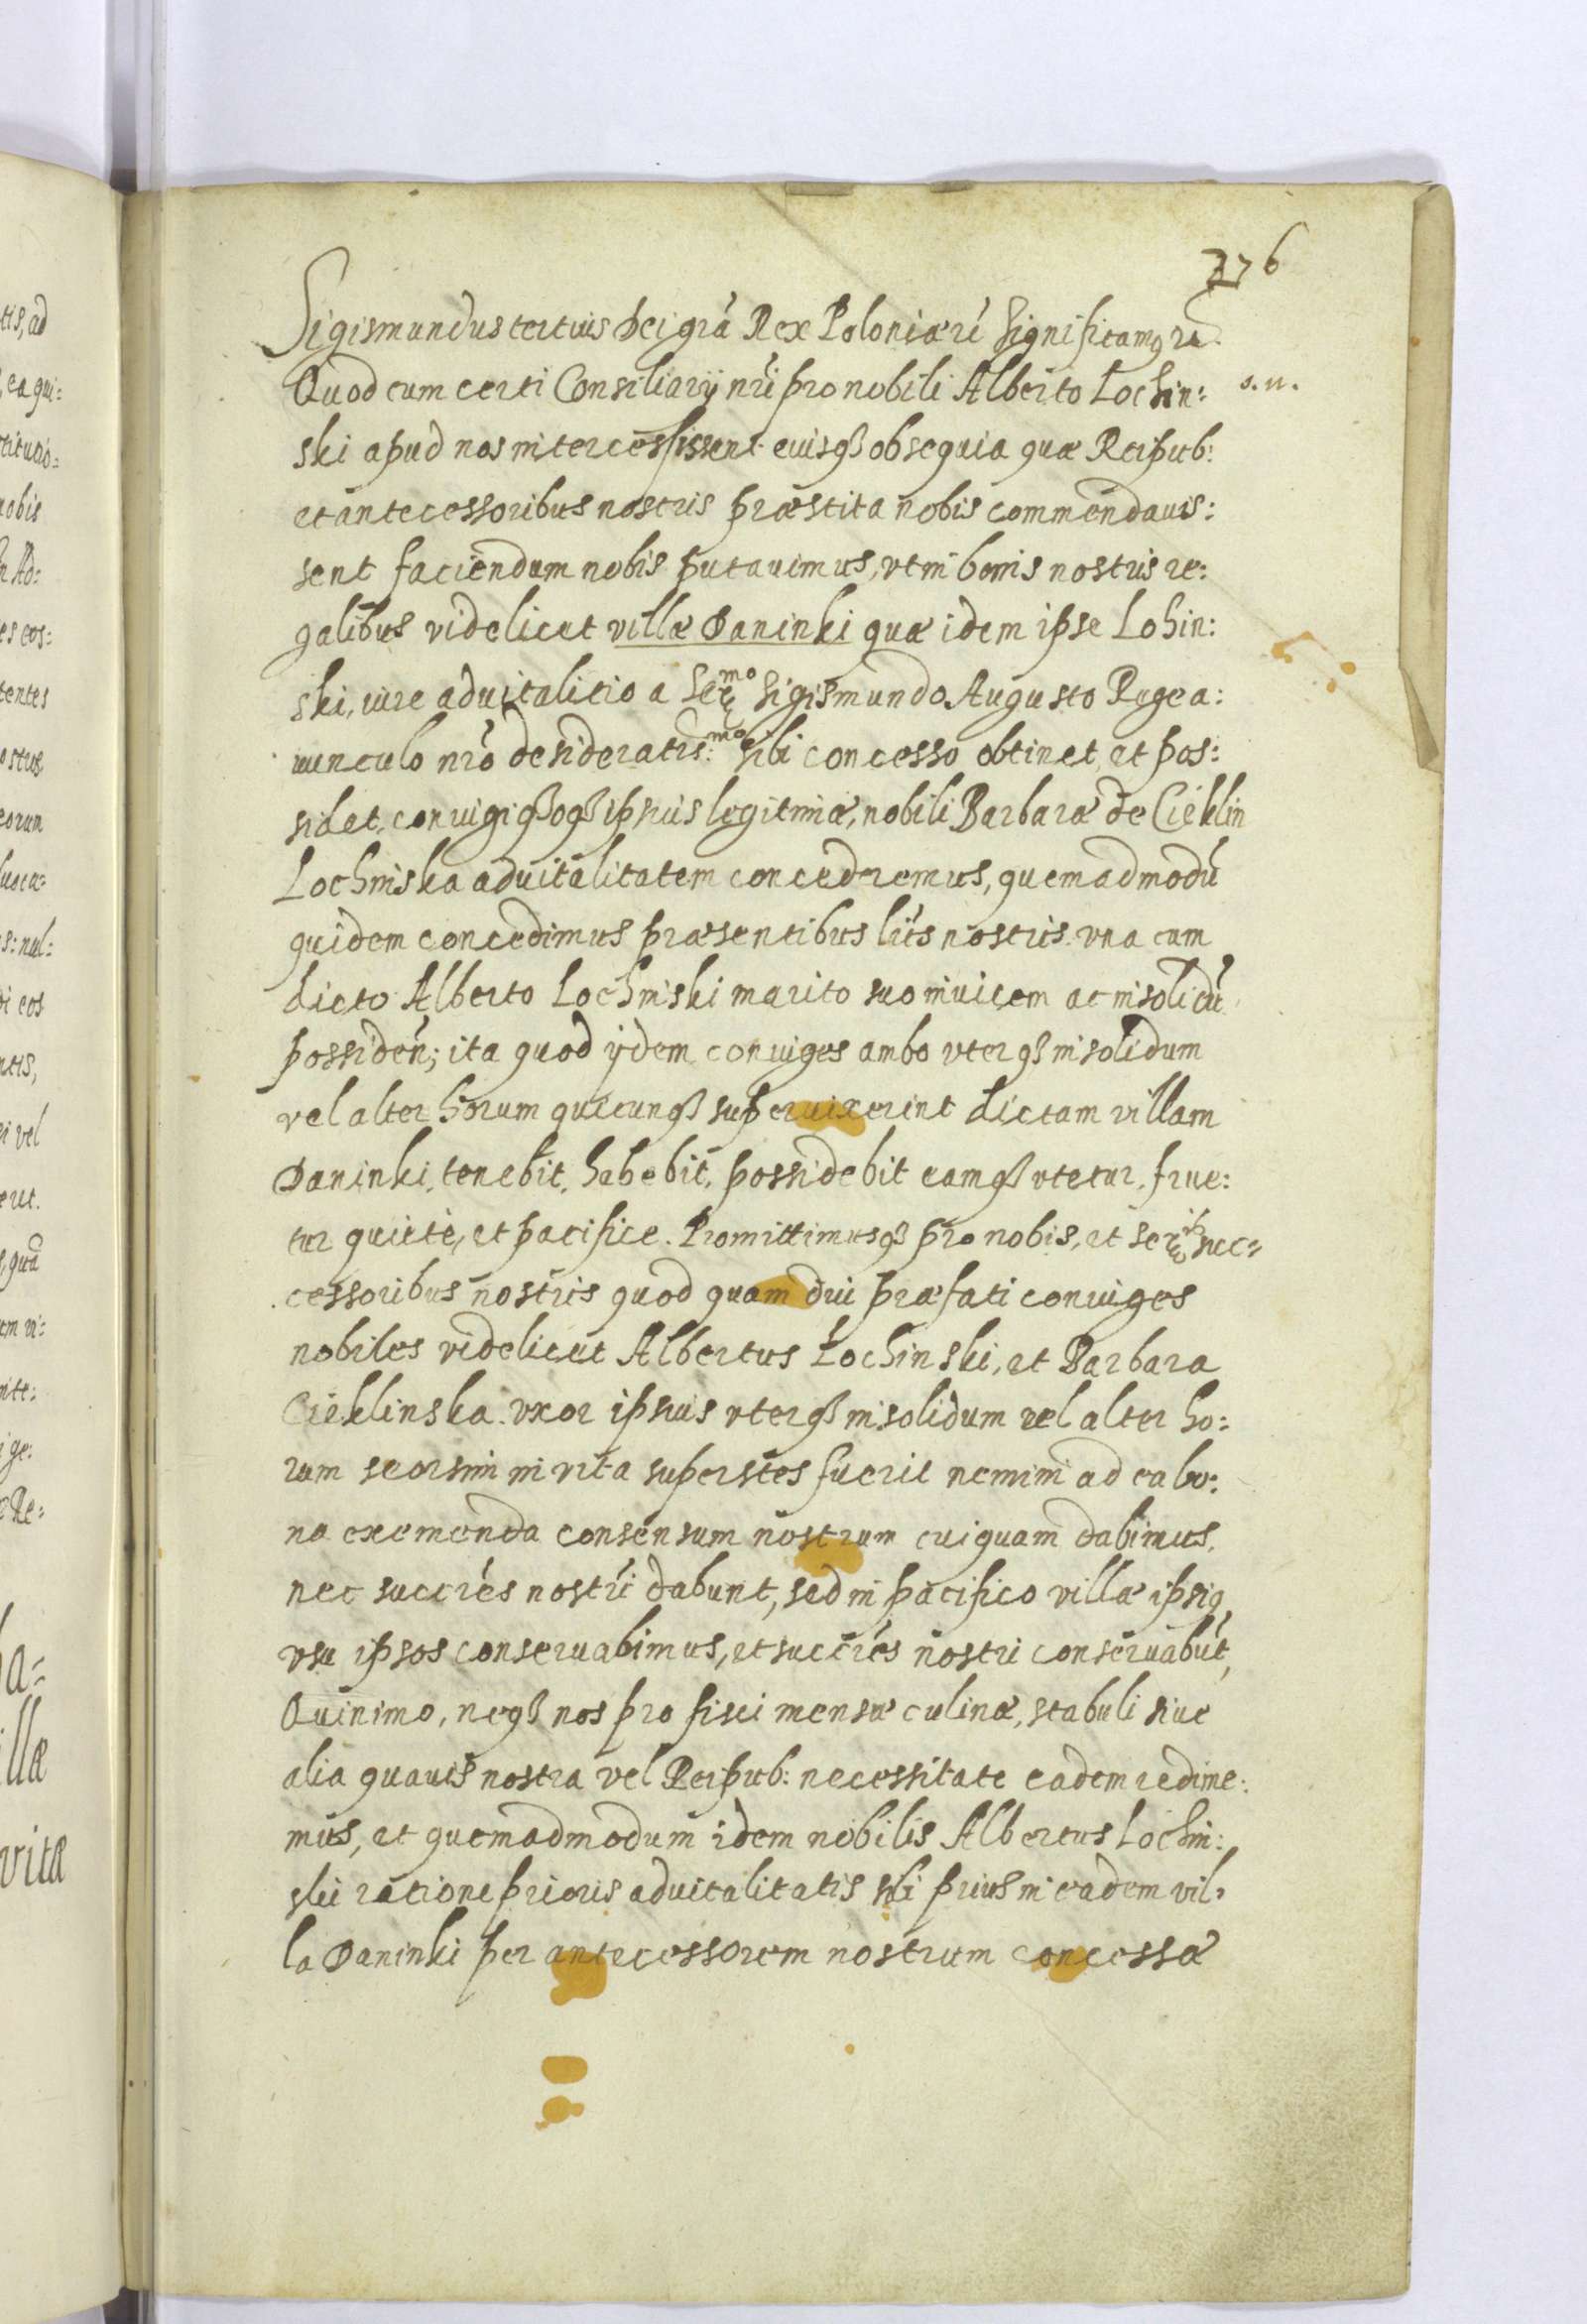 276
Sigismundus tertius Dei grã Rex Poloniæ rĩ Significamꝯ rĩ
Quod cum certi Consiliarij nrĩ pro nobili Alberto Lochin:
s. n.
ski apud nos intercessissent eiusqꝫ obsequia quæ Reipub:
et antecessoribus nostris præstita nobis commendauis:
sent faciendum nobis putauimus, vt in bonis nostris re:
galibus videlicet villæ Daninki quæ idem ipse Lohin:
ski, iure aduitalitio a Ser.mo Sigismundo Augusto Rege a:
uunculo nrõ desideratis:mo sibi concesso obtinet, et pos:
sidet, coniugi qꝫ oqꝫ ipsius legitimæ, nobili Barbaræ de Cieklin
Lochinska aduitalitatem concederemus, quemadmodũ
quidem concedimus præsentibus lrĩs nostris. vna cum
dicto Alberto Lochinski marito suo inuicem ac insolidũ
possideñ; ita quod ijdem coniuges ambo vterqꝫ insolidum
vel alter horum quicunqꝫ superuixerint dictam villam
Daninki, tenebit, habebit, possidebit eamqꝫ vtetur, frue:
tur quietè, et pacifice. Promittimusqꝫ pro nobis, et Ser.ib suc:
cessoribus nostris quod quam diu præfati coniuges
nobiles videlicet Albertus Lochinski, et Barbara
Cieklinska. vxor ipsius vterqꝫ insolidum vel alter ho:
rum seorsim in vita superstes fuerit nemini ad ea bo:
na exemenda consensum nostrum cuiquam dabimus,
nec succrẽs nostri dabunt, sed in pacifico villæ ipsiꝯ
vsu ipsos conseruabimus, et succrẽs nostri conseruabũt,
Quinimo, neqꝫ nos pro fisci mensæ culinæ, stabuli siue
alia quauis nostra vel Reipub: necessitate eadem redime:
mus, et quemadmodum idem nobilis Albertus Lochin:
ski ratione prioris aduitalitatis sibi prius in eadem vil:
la Daninki per antecessorem nostrum concessæ